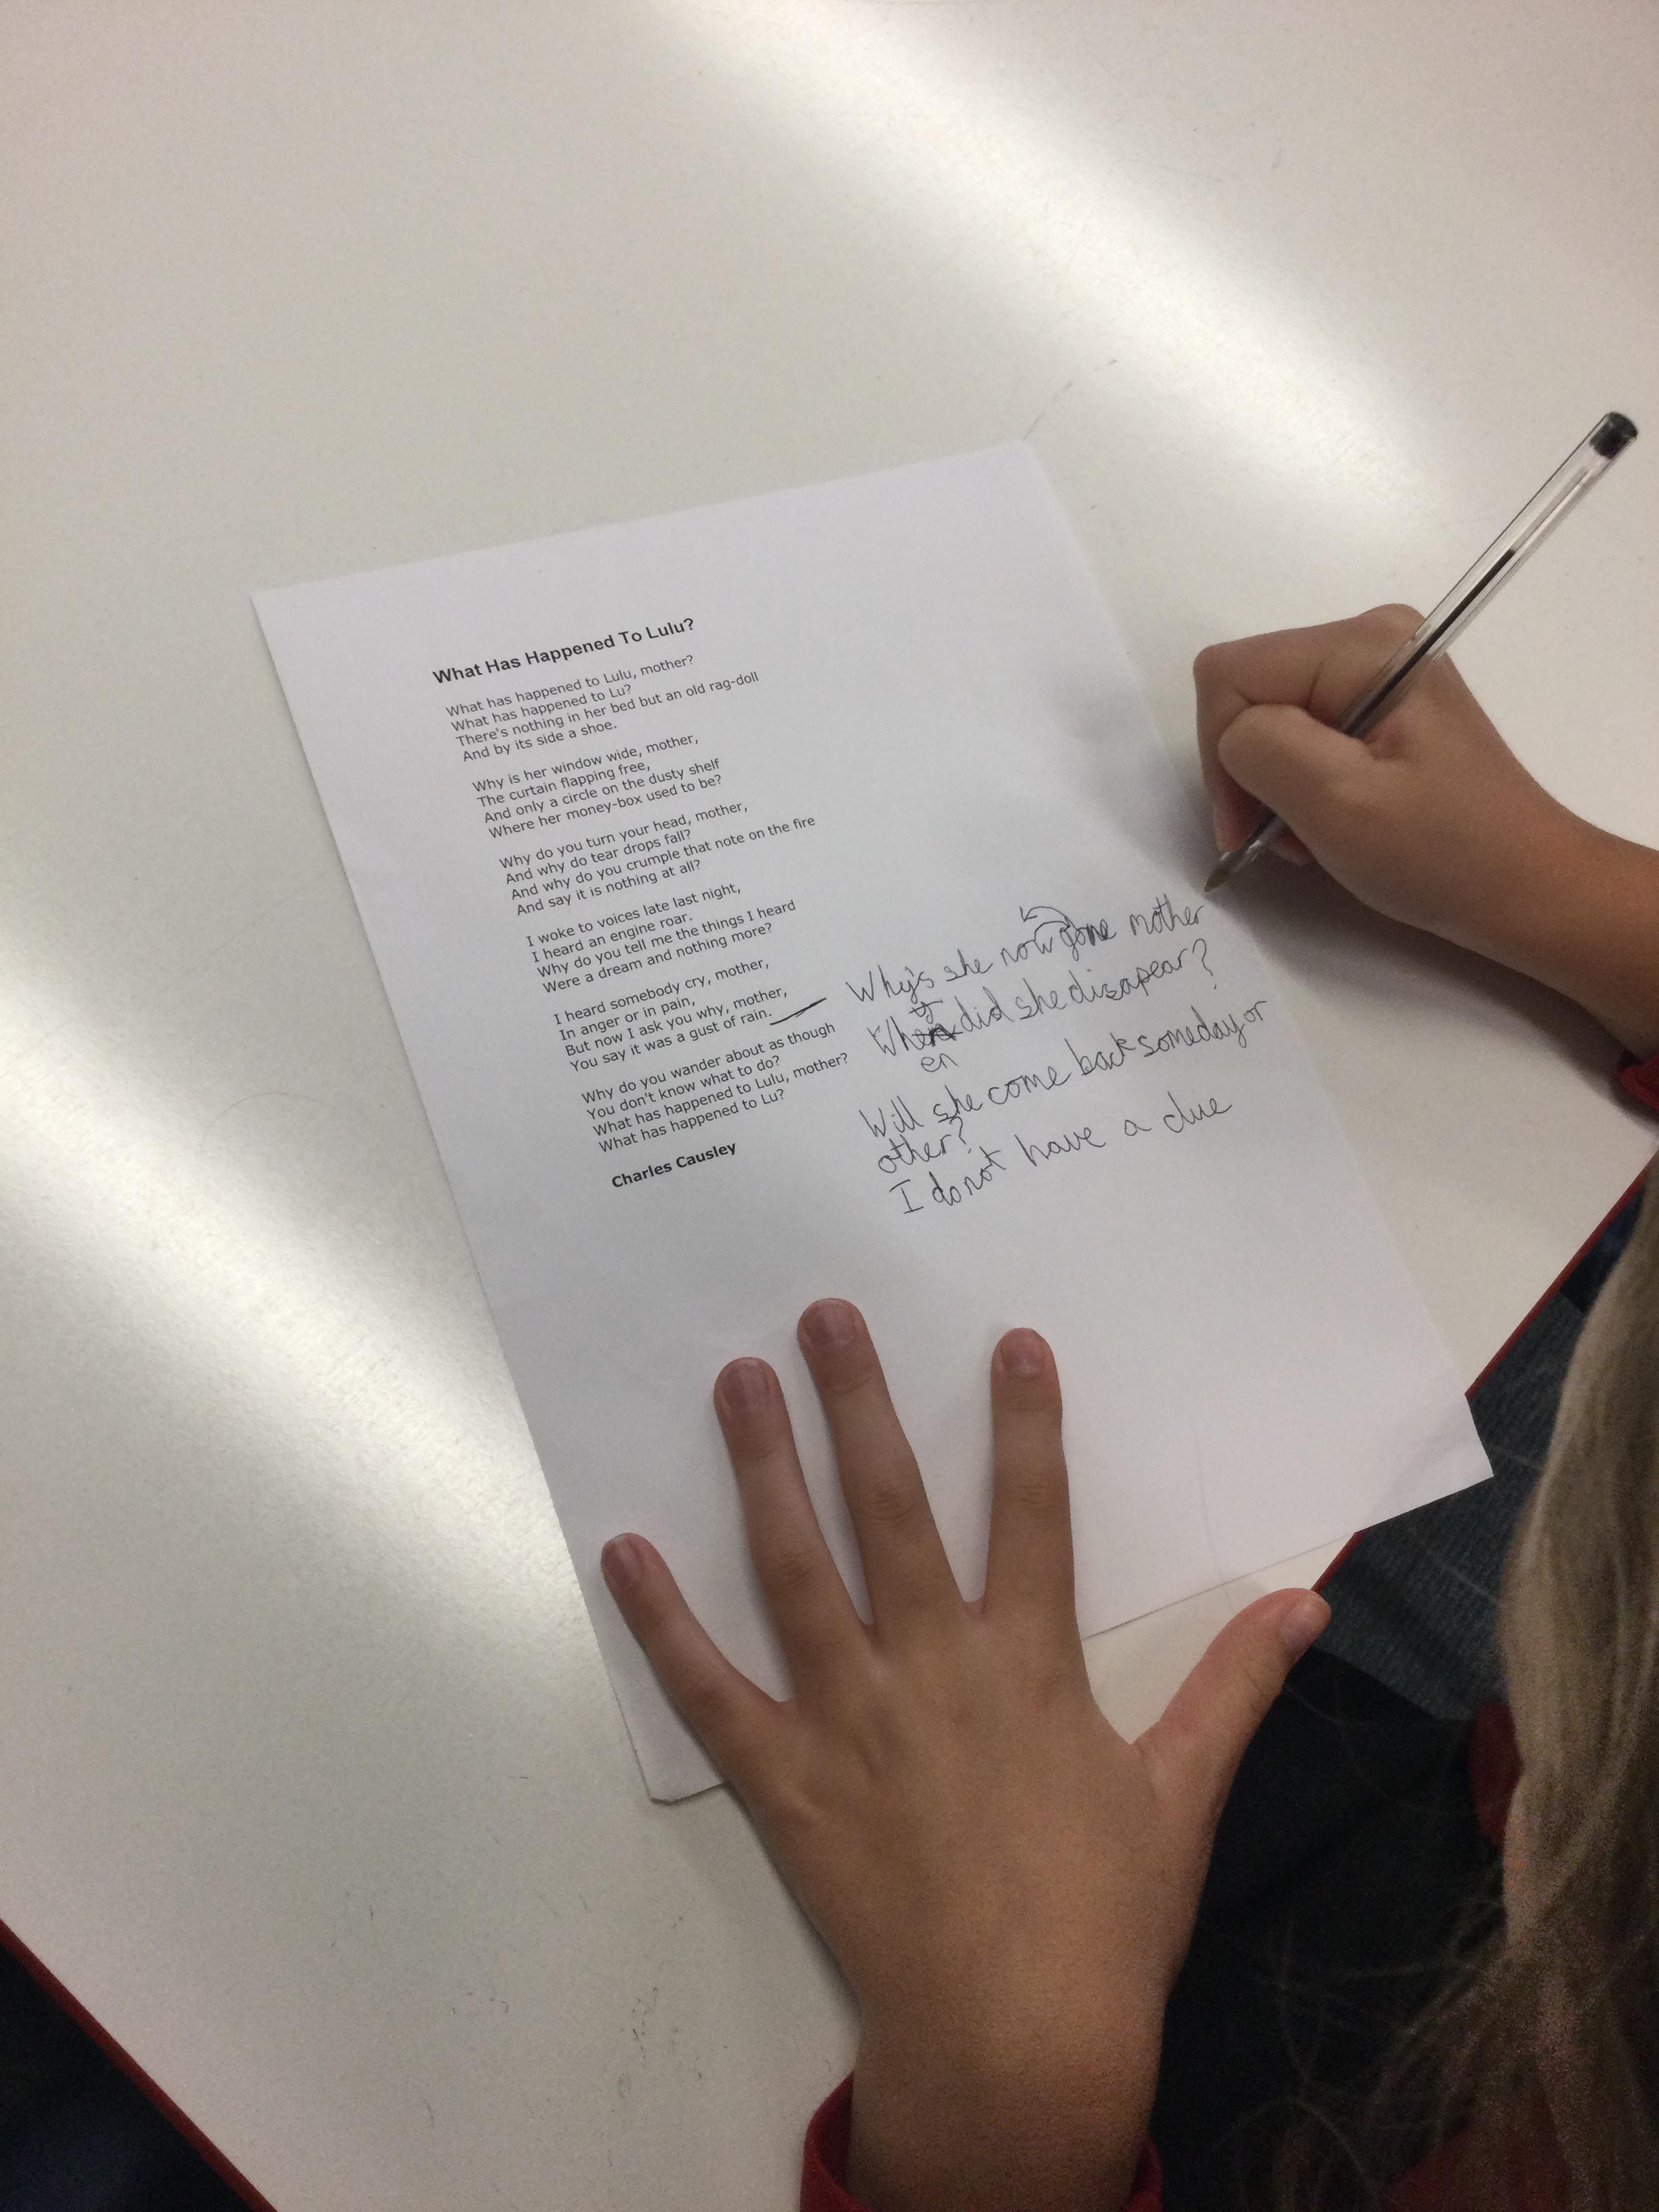 What Has Happened To Lulu?
What has happened to Lulu, mother?
What has happened to Lu?
There's nothing in her bed but an old rag-doll
And by its side a shoe.
Why is her window wide, mother,
The curtain flapping free,
And only a circle on the dusty shelf
Where her money-box used to be?
Why do you turn your head, mother,
And why do tear drops fall?
And why do you crumple that note on the fire
And say it is nothing at all?
I woke to voices late last night,
I heard an engine roar.
Why do you tell me the things I heard
Were a dream and nothing more?
I heard somebody cry, mother,
In anger or in pain,
But now I ask you why, mother,
You say it was a gust of rain.
Why do you wander about as though
You don't know what to do?
What has happened to Lulu, mother?
What has happened to Lu?
Charles Causley
Why's she now gone mother
When did she disapear?
en
Will she come back someday or
other?
I do not have a clue